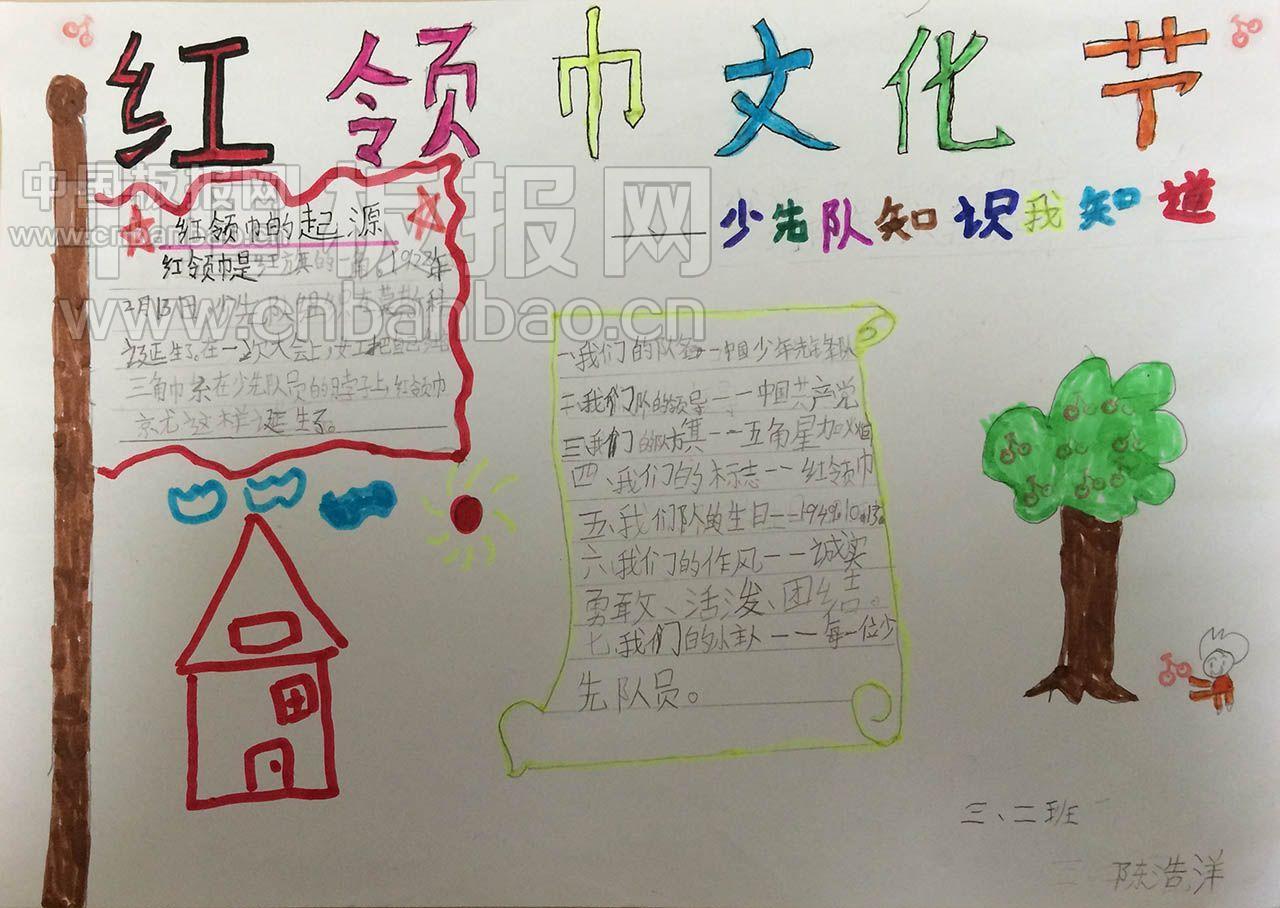 红领巾文化节
少先队知识我知道
红领巾的起源
红领巾是红方旗的一角。1922年
2月13日少先队组织在莫斯科
诞生了。在一次大会上,女工把自己
三角巾系在少先队员的脖子上,红领巾
京尤这样诞生了。
一、我们的队名——中国少年先锋队
二、我们队的领导——中国共产党
三、我们的队旗——五角星加火炬
四、我们的标志——红领巾
五、我们队的生日——1949.10.13.
六、我们的作风——诚实
勇敢、活泼、团结。
七、我们的小主人——每一位少
先队员。
三、二班
陈浩洋
中国板报网
www.cnbanbao.cn